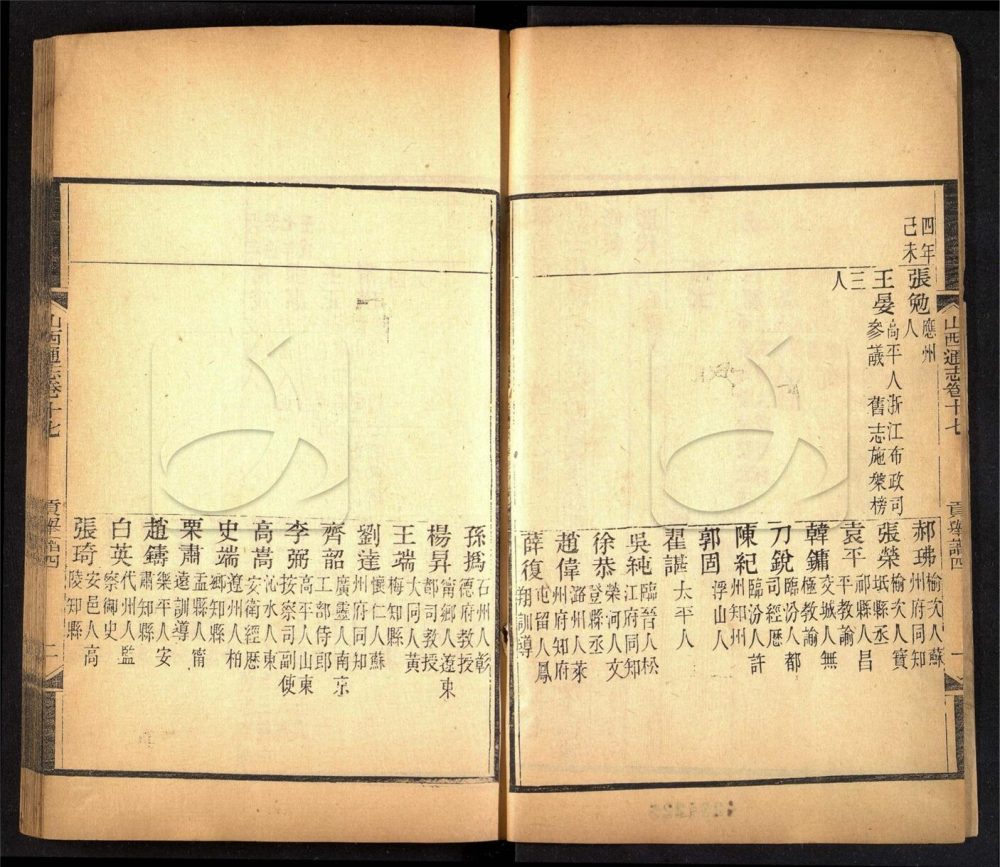 山西通志卷十七 貢舉譜四 一
四年己未
張勉 應州人
王晏 高平人浙江布政司參議 舊志施槃榜
三人
郝珮 榆次人蘇州府同知
張榮 榆次人寶坻縣丞
袁平 祁縣人昌平教諭
韓鏞 交城人無極教諭
刀銳 臨汾人都司經歷
陳紀 臨汾人許州知州
郭固 浮山人
翟諶 太平人
吳純 臨晉人松江府同知
徐恭 榮河人文登縣丞
趙偉 潞州人萊州府知府
薛復 屯留人鳳翔訓導
孫撝 石州人彰德府教授
楊昇 甯鄉人遼東都司教授
王端 大同人黃梅知縣
劉達 懷仁人蘇州府同知
齊韶 廣靈人南京工部侍郎
李弼 高平人山東按察司副使
高嵩 沁水人東安衛經歷
史端 遼州人柏鄉知縣
栗肅 盂縣人甯遠訓導
趙鑄 樂平人安肅知縣
白英 代州人監察御史
張琦 安邑人高陵知縣
山西通志卷十七 貢舉譜四 二